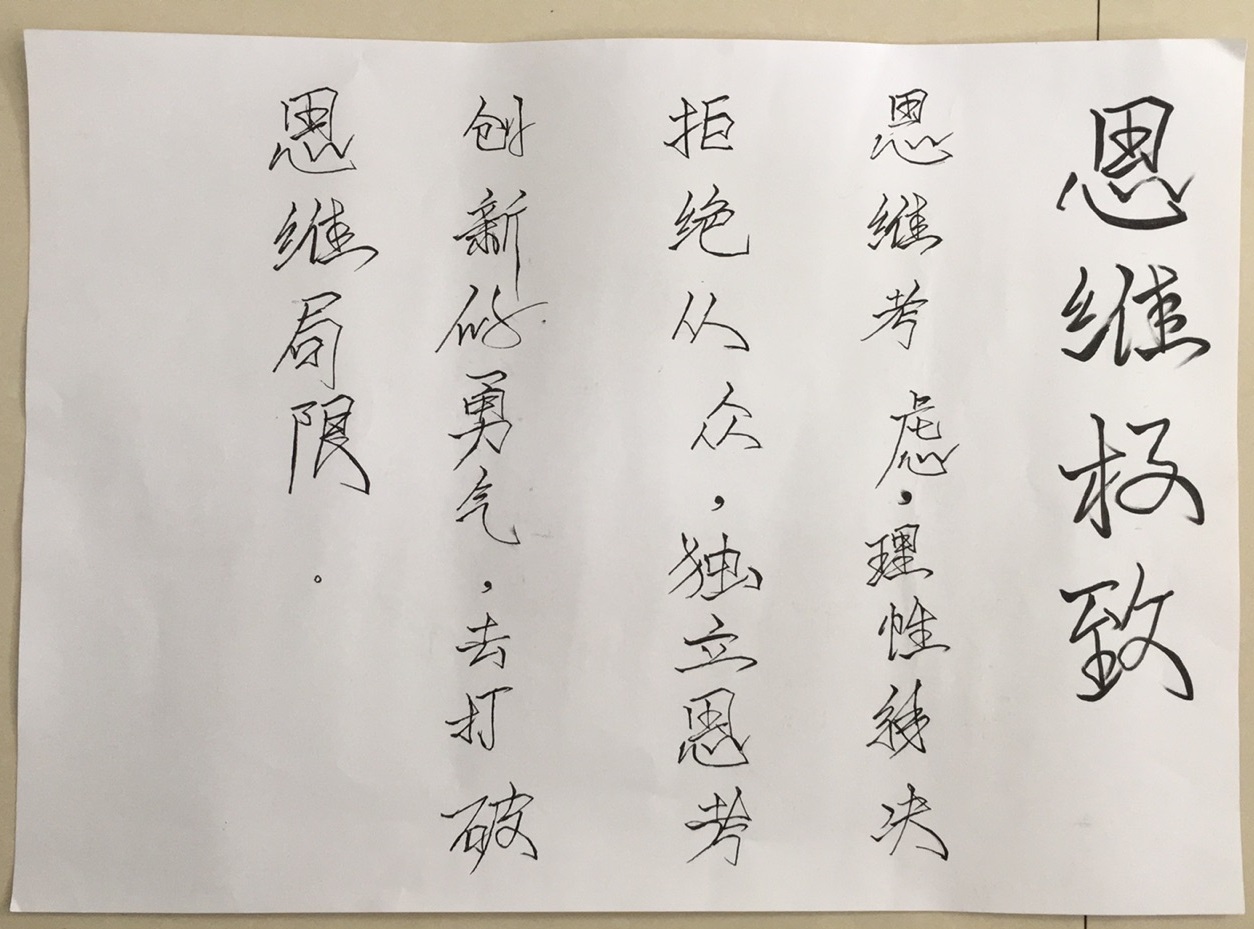 思维极致
思维考虑，理性解决
拒绝从众，独立思考
创新的勇气，去打破
思维局限。